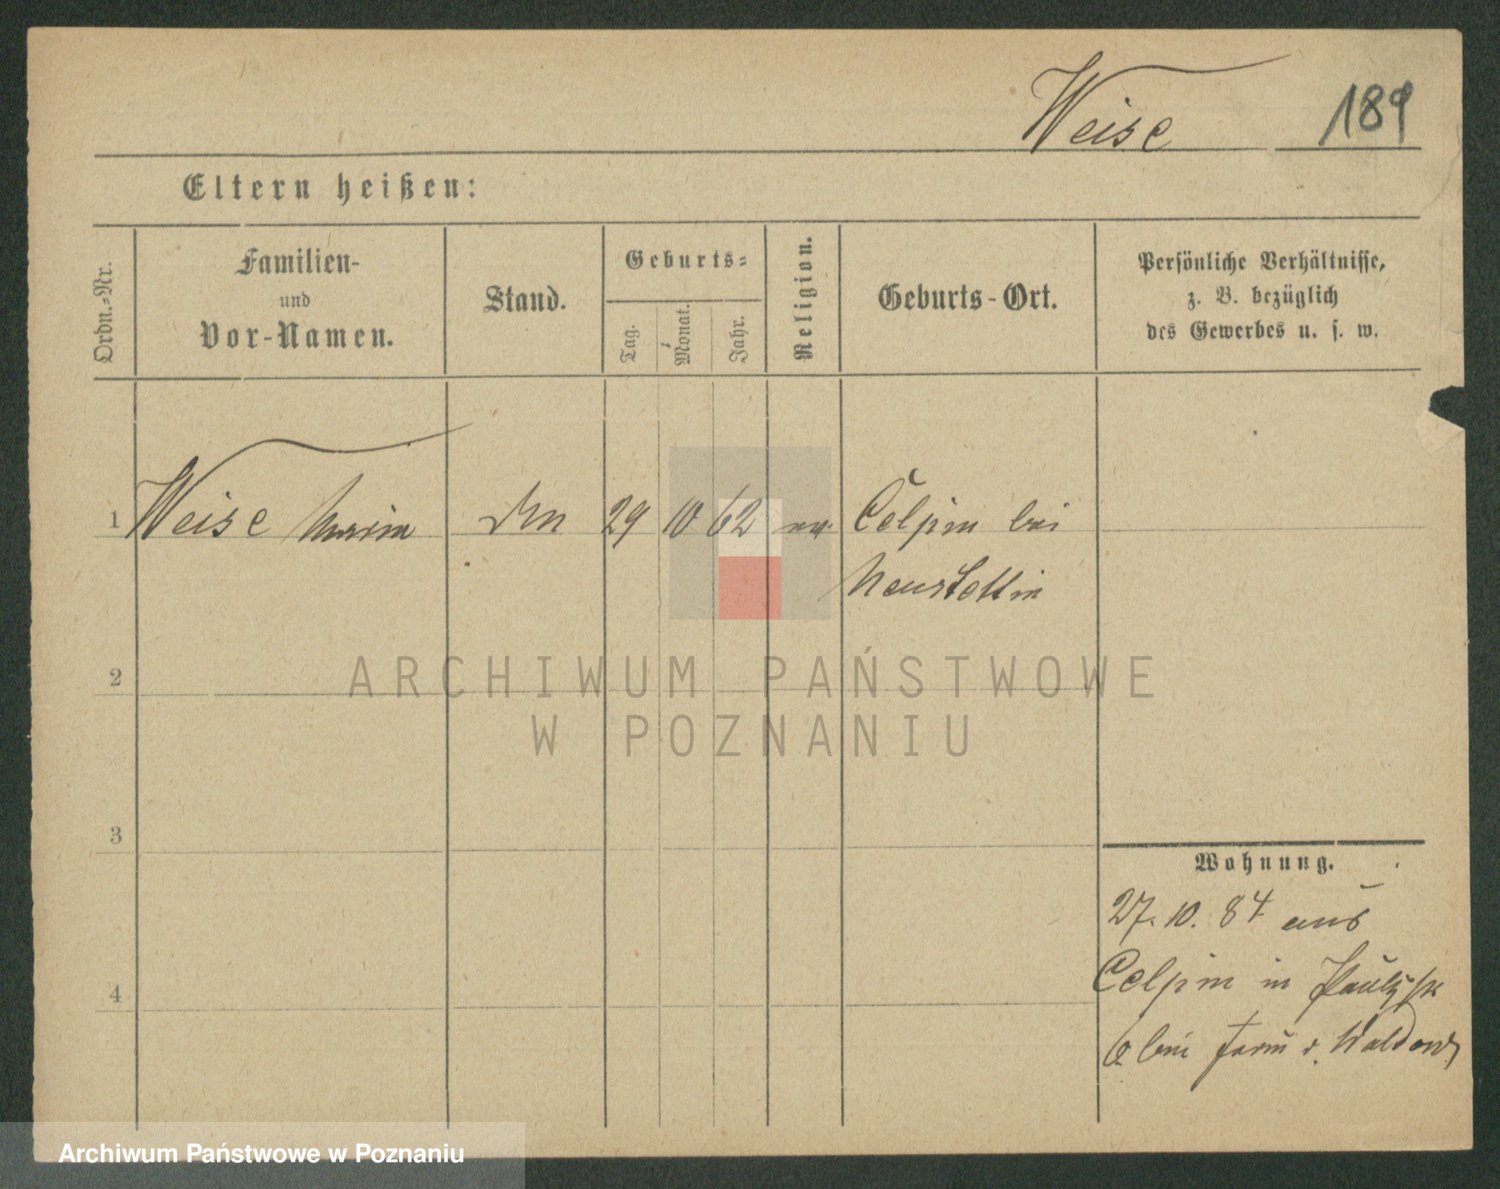 Weise 189
Eltern heißen:
Ordn.-Nr.
Familien-
und
Vor-Namen.
Stand.
Geburts-
Tag.
Monat.
Jahr.
Religion.
Geburts-Ort.
Persönliche Verhältnisse,
z. B. bezüglich
des Gewerbes u. s. w.
1 Weise Maria 29 10 62 ev. Celpin bei
Neustettin
2
ARCHIWUM PAŃSTWOWE
W POZNANIU
3
Wohnung.
27. 10. 84 aus
Celpin in
4
6 bei Frau v. Waldow
Archiwum Państwowe w Poznaniu